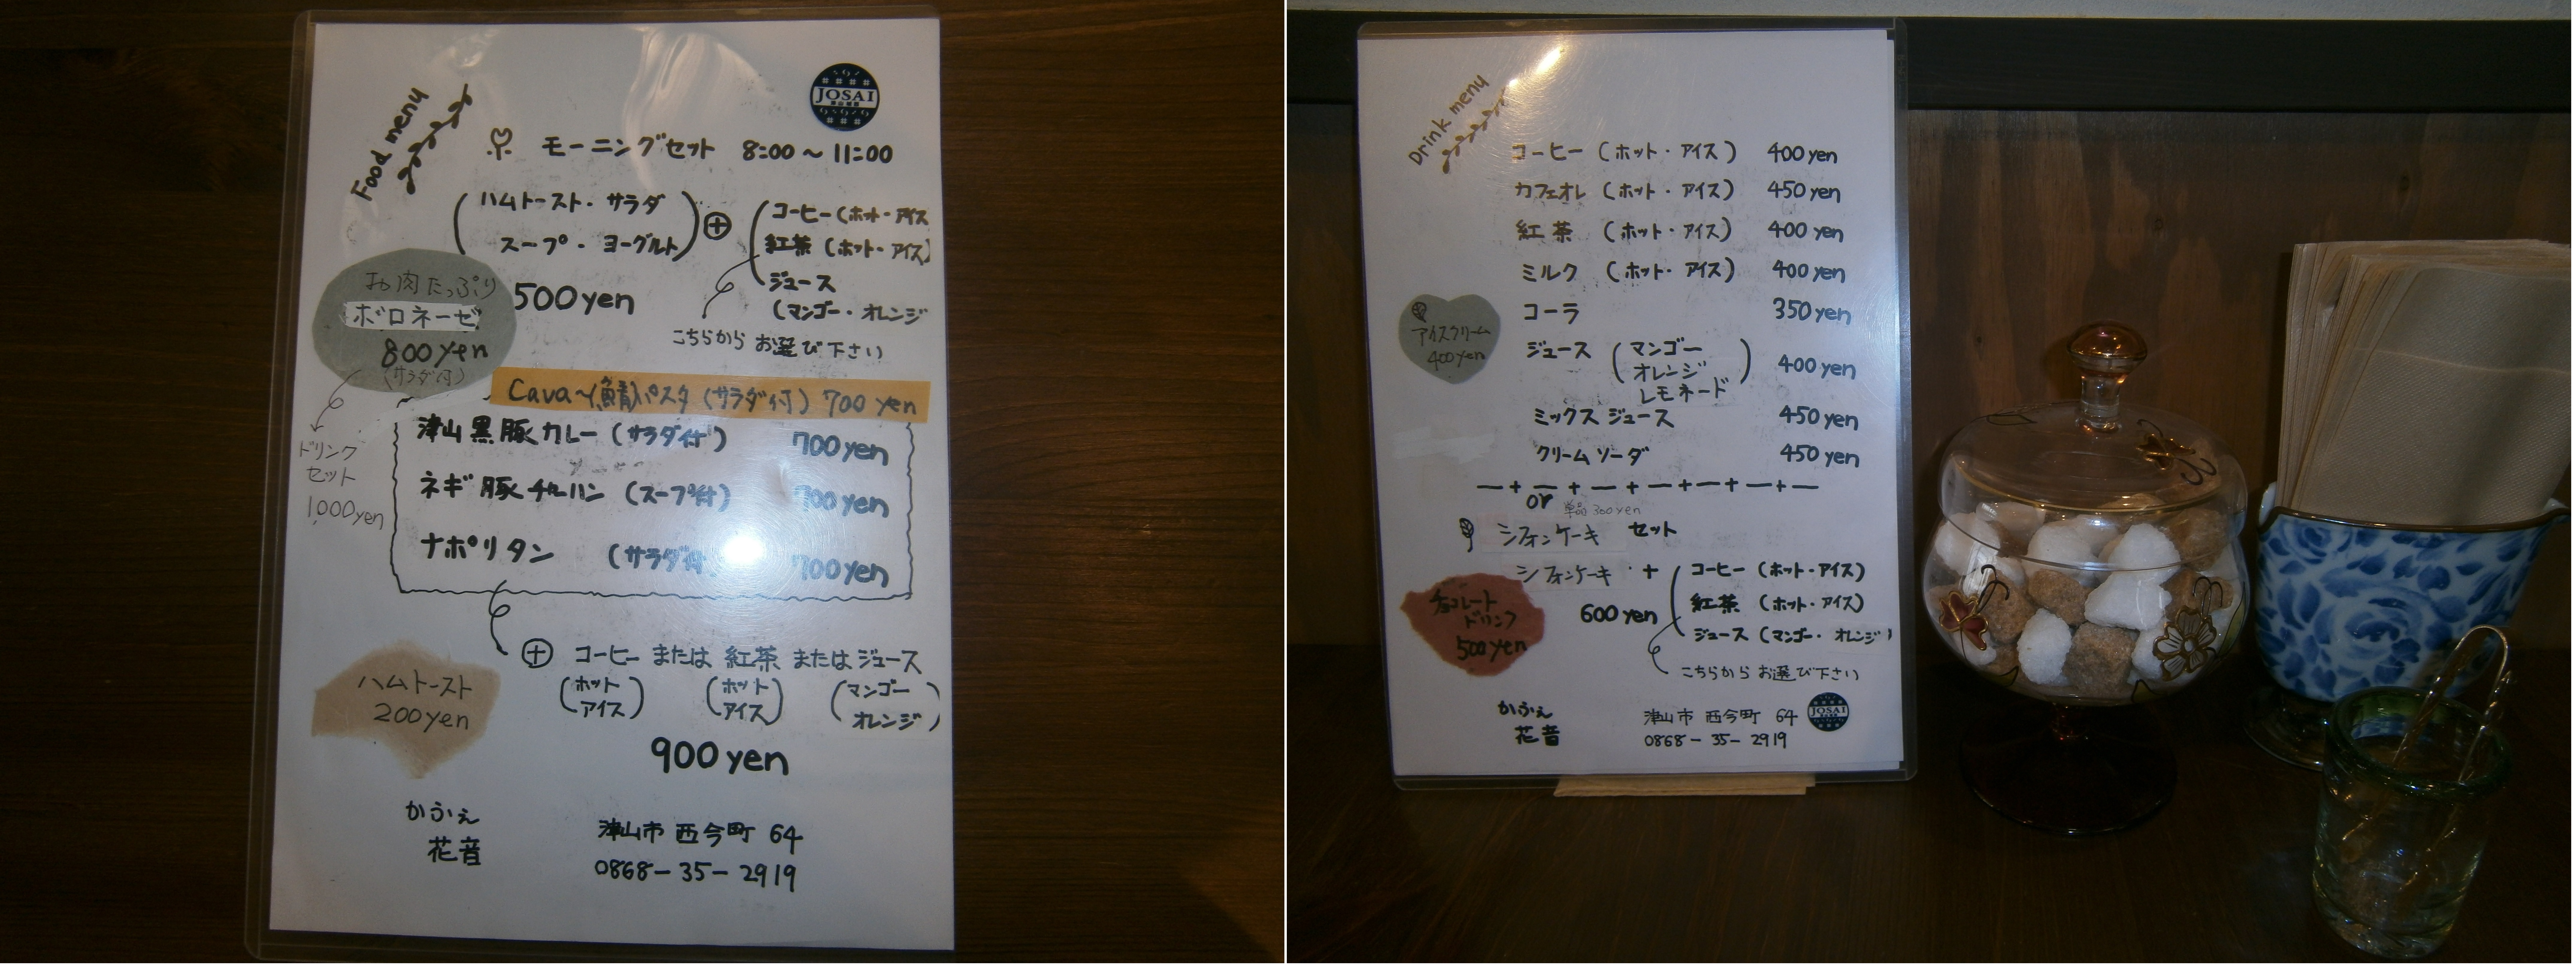 Food menu
JOSAI
モーニングセット 8:00～11:00
(ハムトースト・サラダ
スープ・ヨーグルト)
⊕
コーヒー(ホット・アイス
紅茶(ホット・アイス)
ジュース
(マンゴー・オレンジ
500yen
こちらから お選び下さい
お肉たっぷり
ボロネーゼ
800yen
(サラダ付)
ドリンク
セット
1,000yen
Cava～(鯖)パスタ(サラダ付) 700 yen
津山黒豚カレー(サラダ付) 700yen
ネギ豚チャーハン(スープ付) 700yen
ナポリタン (サラダ付) 700yen
⊕ コーヒー または 紅茶 または ジュース
(ホット アイス) (ホット アイス) (マンゴー オレンジ)
900yen
ハムトースト
200yen
かふぇ
花音
津山市 西今町 64
0868-35-2919
Drink menu
コーヒー(ホット・アイス) 400yen
カフェオレ(ホット・アイス) 450yen
紅茶(ホット・アイス) 400yen
ミルク(ホット・アイス) 400yen
コーラ 350yen
ジュース(マンゴー
オレンジ
レモネード) 400yen
ミックスジュース 450yen
クリームソーダ 450yen
アイスクリーム
400yen
or 単品300yen
シフォンケーキ セット
シフォンケーキ +
コーヒー(ホット・アイス)
紅茶(ホット・アイス)
ジュース(マンゴー・オレンジ)
600yen
こちらから お選び下さい
チョコレート
ドリンク
500yen
かふぇ
花音
津山市 西今町 64
0868-35-2919
JOSAI